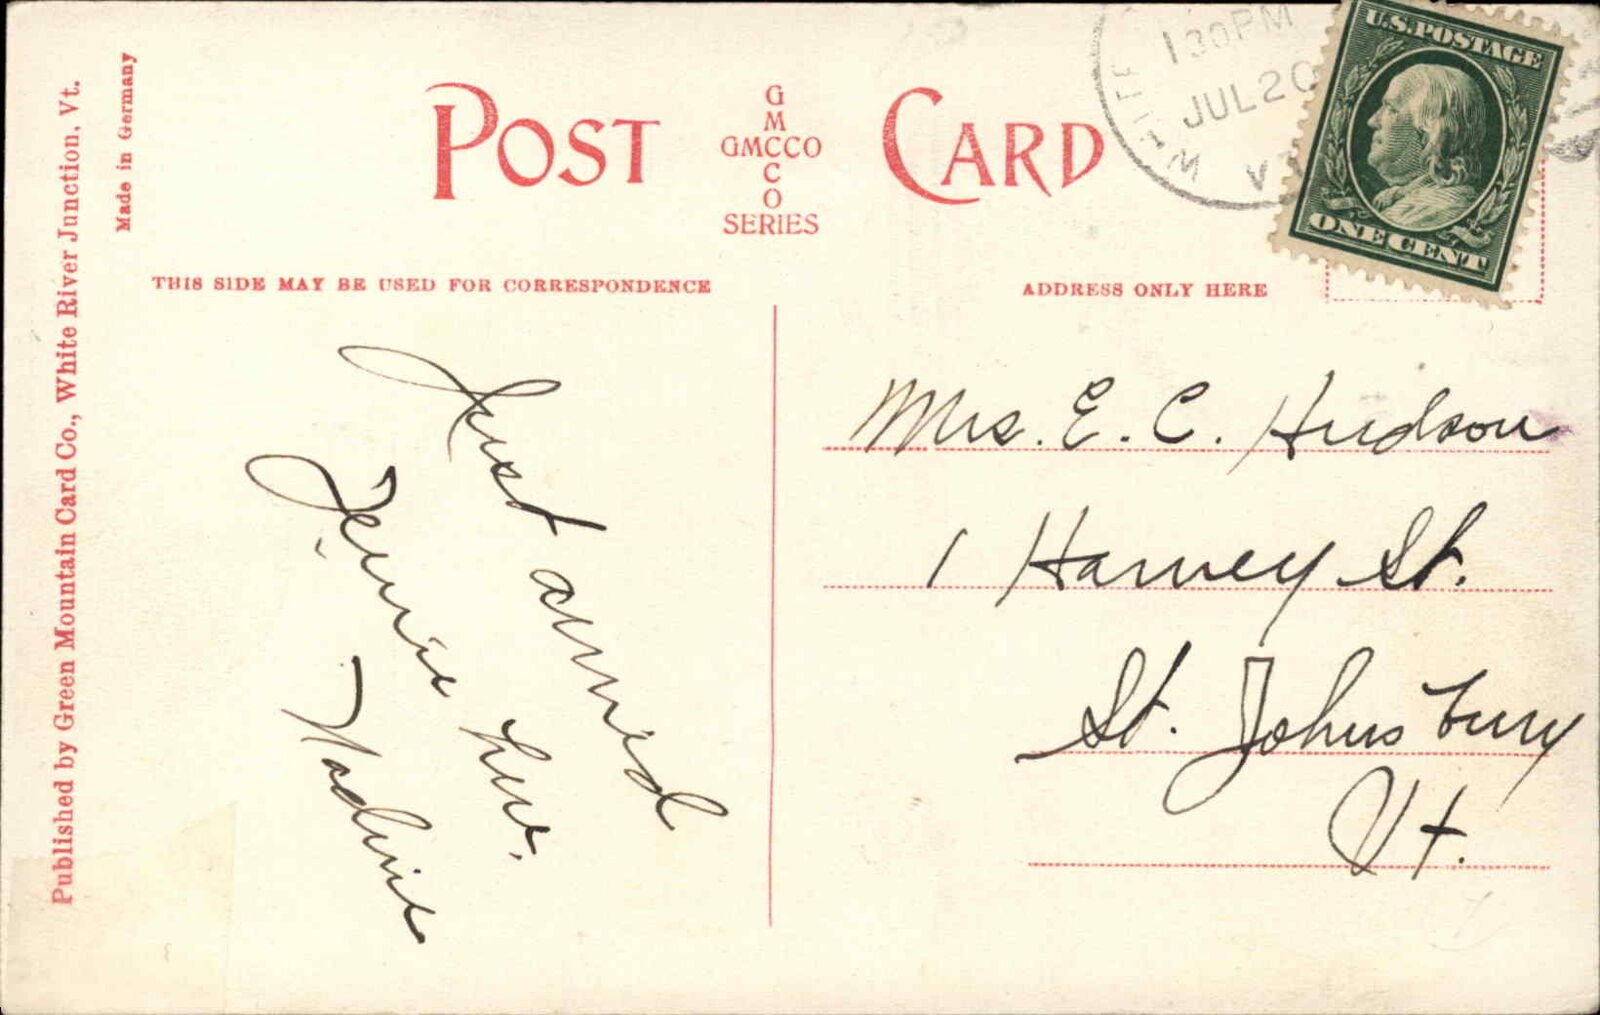 Published by Green Mountain Card Co., White River Junction, Vt.
Made in Germany
POST CARD
GMCCO
GMCCO
SERIES
THIS SIDE MAY BE USED FOR CORRESPONDENCE
ADDRESS ONLY HERE
130PM
JUL 20
U.S. POSTAGE
ONE CENT
Just arrived
Jennie here.
Nadine
Mrs. E. C. Hudson
1 Harvey St.
St. Johnsbury
Vt.